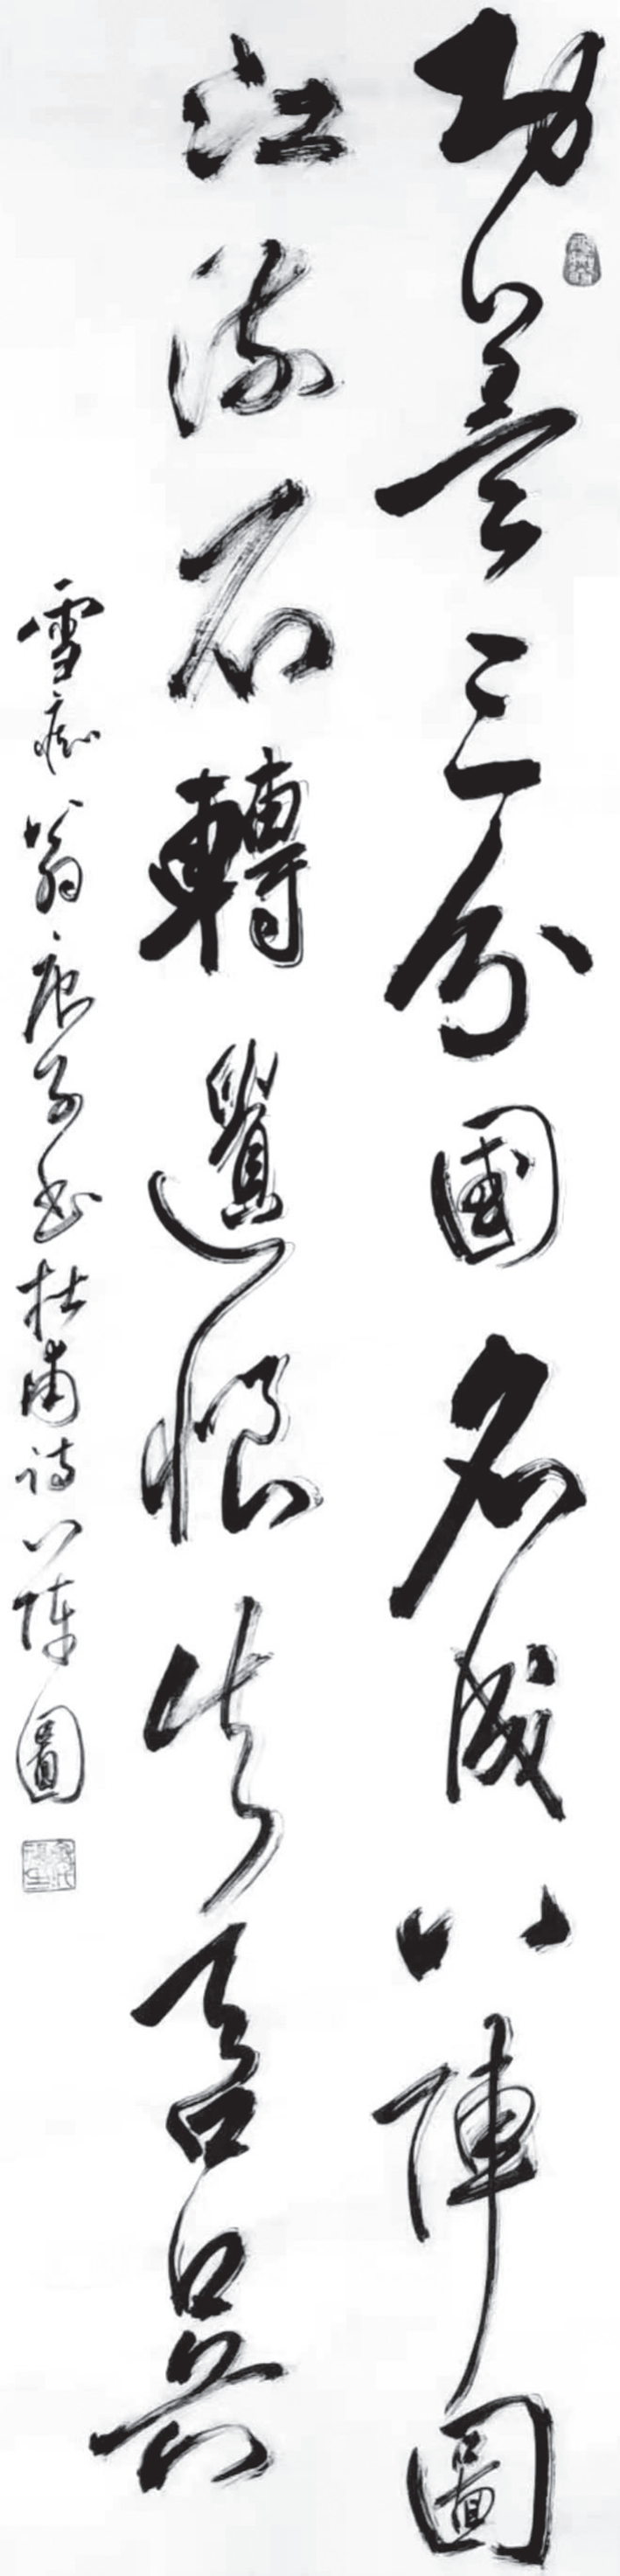 功蓋三分國名成八陣圖
江流石轉遺恨失吞吳
雪翁庚子書杜甫詩八陣圖